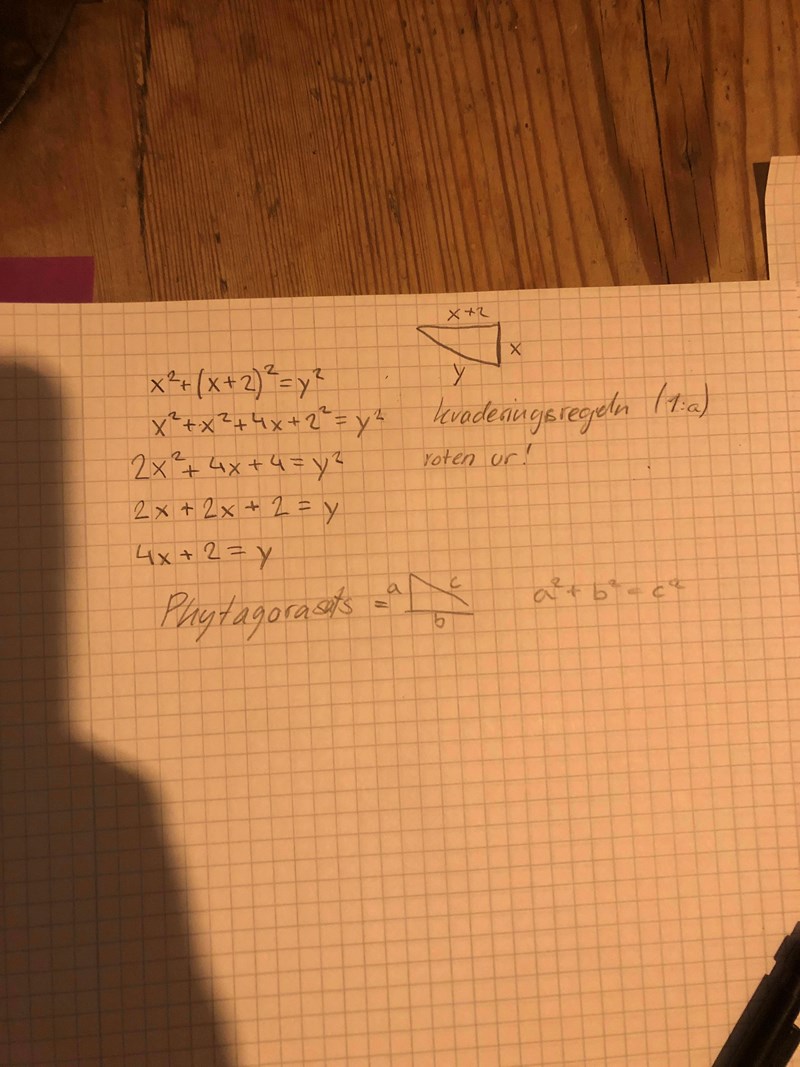 x+2
x
y
x²+(x+2)²=y²
x²+x²+4x+2²=y² kvaderingsregeln (1:a)
2x²+4x+4=y² roten ur!
2x+2x+2=y
4x+2=y
Phytagorasats = a c b a²+b²=c²